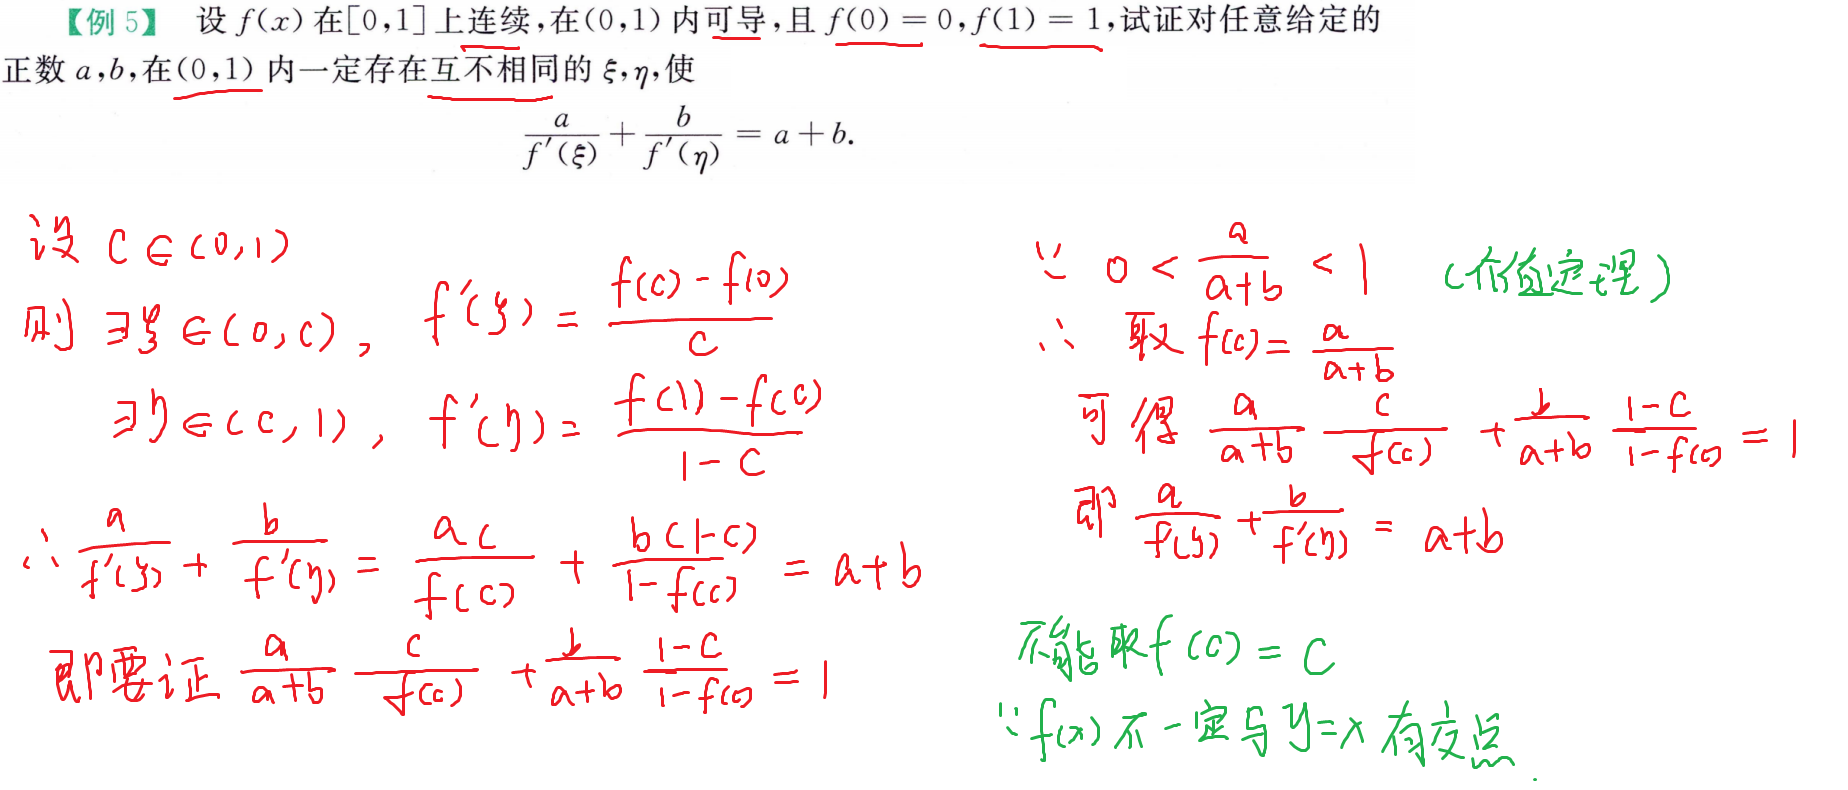 【例 5】 设 f(x) 在[0,1]上连续,在(0,1) 内可导,且 f(0) = 0,f(1) = 1,试证对任意给定的
正数 a,b,在(0,1) 内一定存在互不相同的 ξ,η,使
a/f′(ξ) + b/f′(η) = a + b.
设 C∈(0,1)
则 ∃ξ∈(0,c), f′(ξ) = (f(c)-f(0))/c
∃η∈(c,1), f′(η) = (f(1)-f(c))/(1-c)
∴ a/f′(ξ) + b/f′(η) = ac/f(c) + b(1-c)/(1-f(c)) = a+b
即要证 a/(a+b) c/f(c) + b/(a+b) (1-c)/(1-f(c)) = 1
∵ 0 < a/(a+b) < 1 (介值定理)
∴ 取 f(c) = a/(a+b)
可得 a/(a+b) c/f(c) + b/(a+b) (1-c)/(1-f(c)) = 1
即 a/f′(ξ) + b/f′(η) = a+b
不能取 f(c) = c
∵ f(x) 不一定与 y=x 有交点.